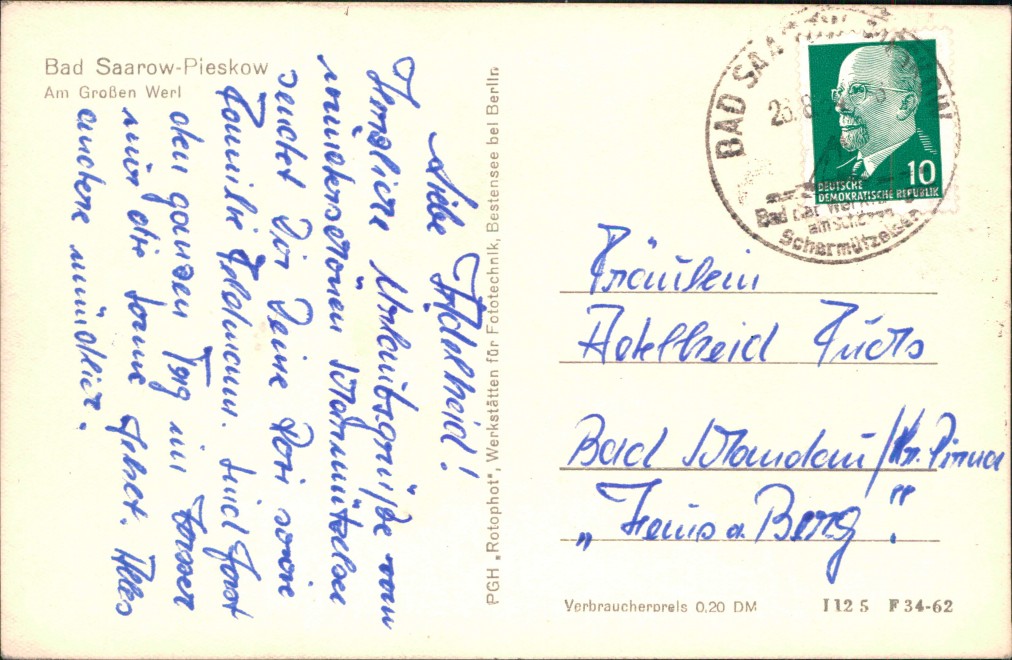 Bad Saarow-Pieskow
Am Großen Werl
Liebe Adelheid!
Herzliche Urlaubsgrüße vom
wunderschönen Scharmützelsee
sendet Dir Deine Dori sowie
Familie. Sind fast
den ganzen Tag im Wasser
nur die Sonne fehlt. Alles
andere mündlich.
PGH „Rotophot", Werkstätten für Fototechnik, Bestensee bei Berlin
BAD SAAROW
Bad der
am schönen
Scharmützelsee
10
DEUTSCHE
DEMOKRATISCHE REPUBLIK
Fräulein
Adelheid Fuchs
Bad Schandau/Kr. Pirna
„Haus a. Berg."
Verbraucherpreis 0,20 DM
I 12 5 F 34-62